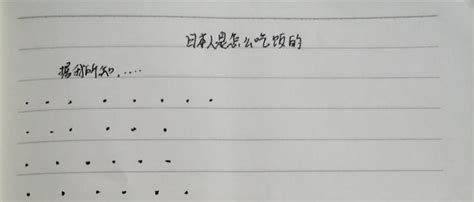 日本人是怎么吃饭的
据我所知，....
. . . . . . . . .
. . . . . . .
. . . . . . .
. . . . . .